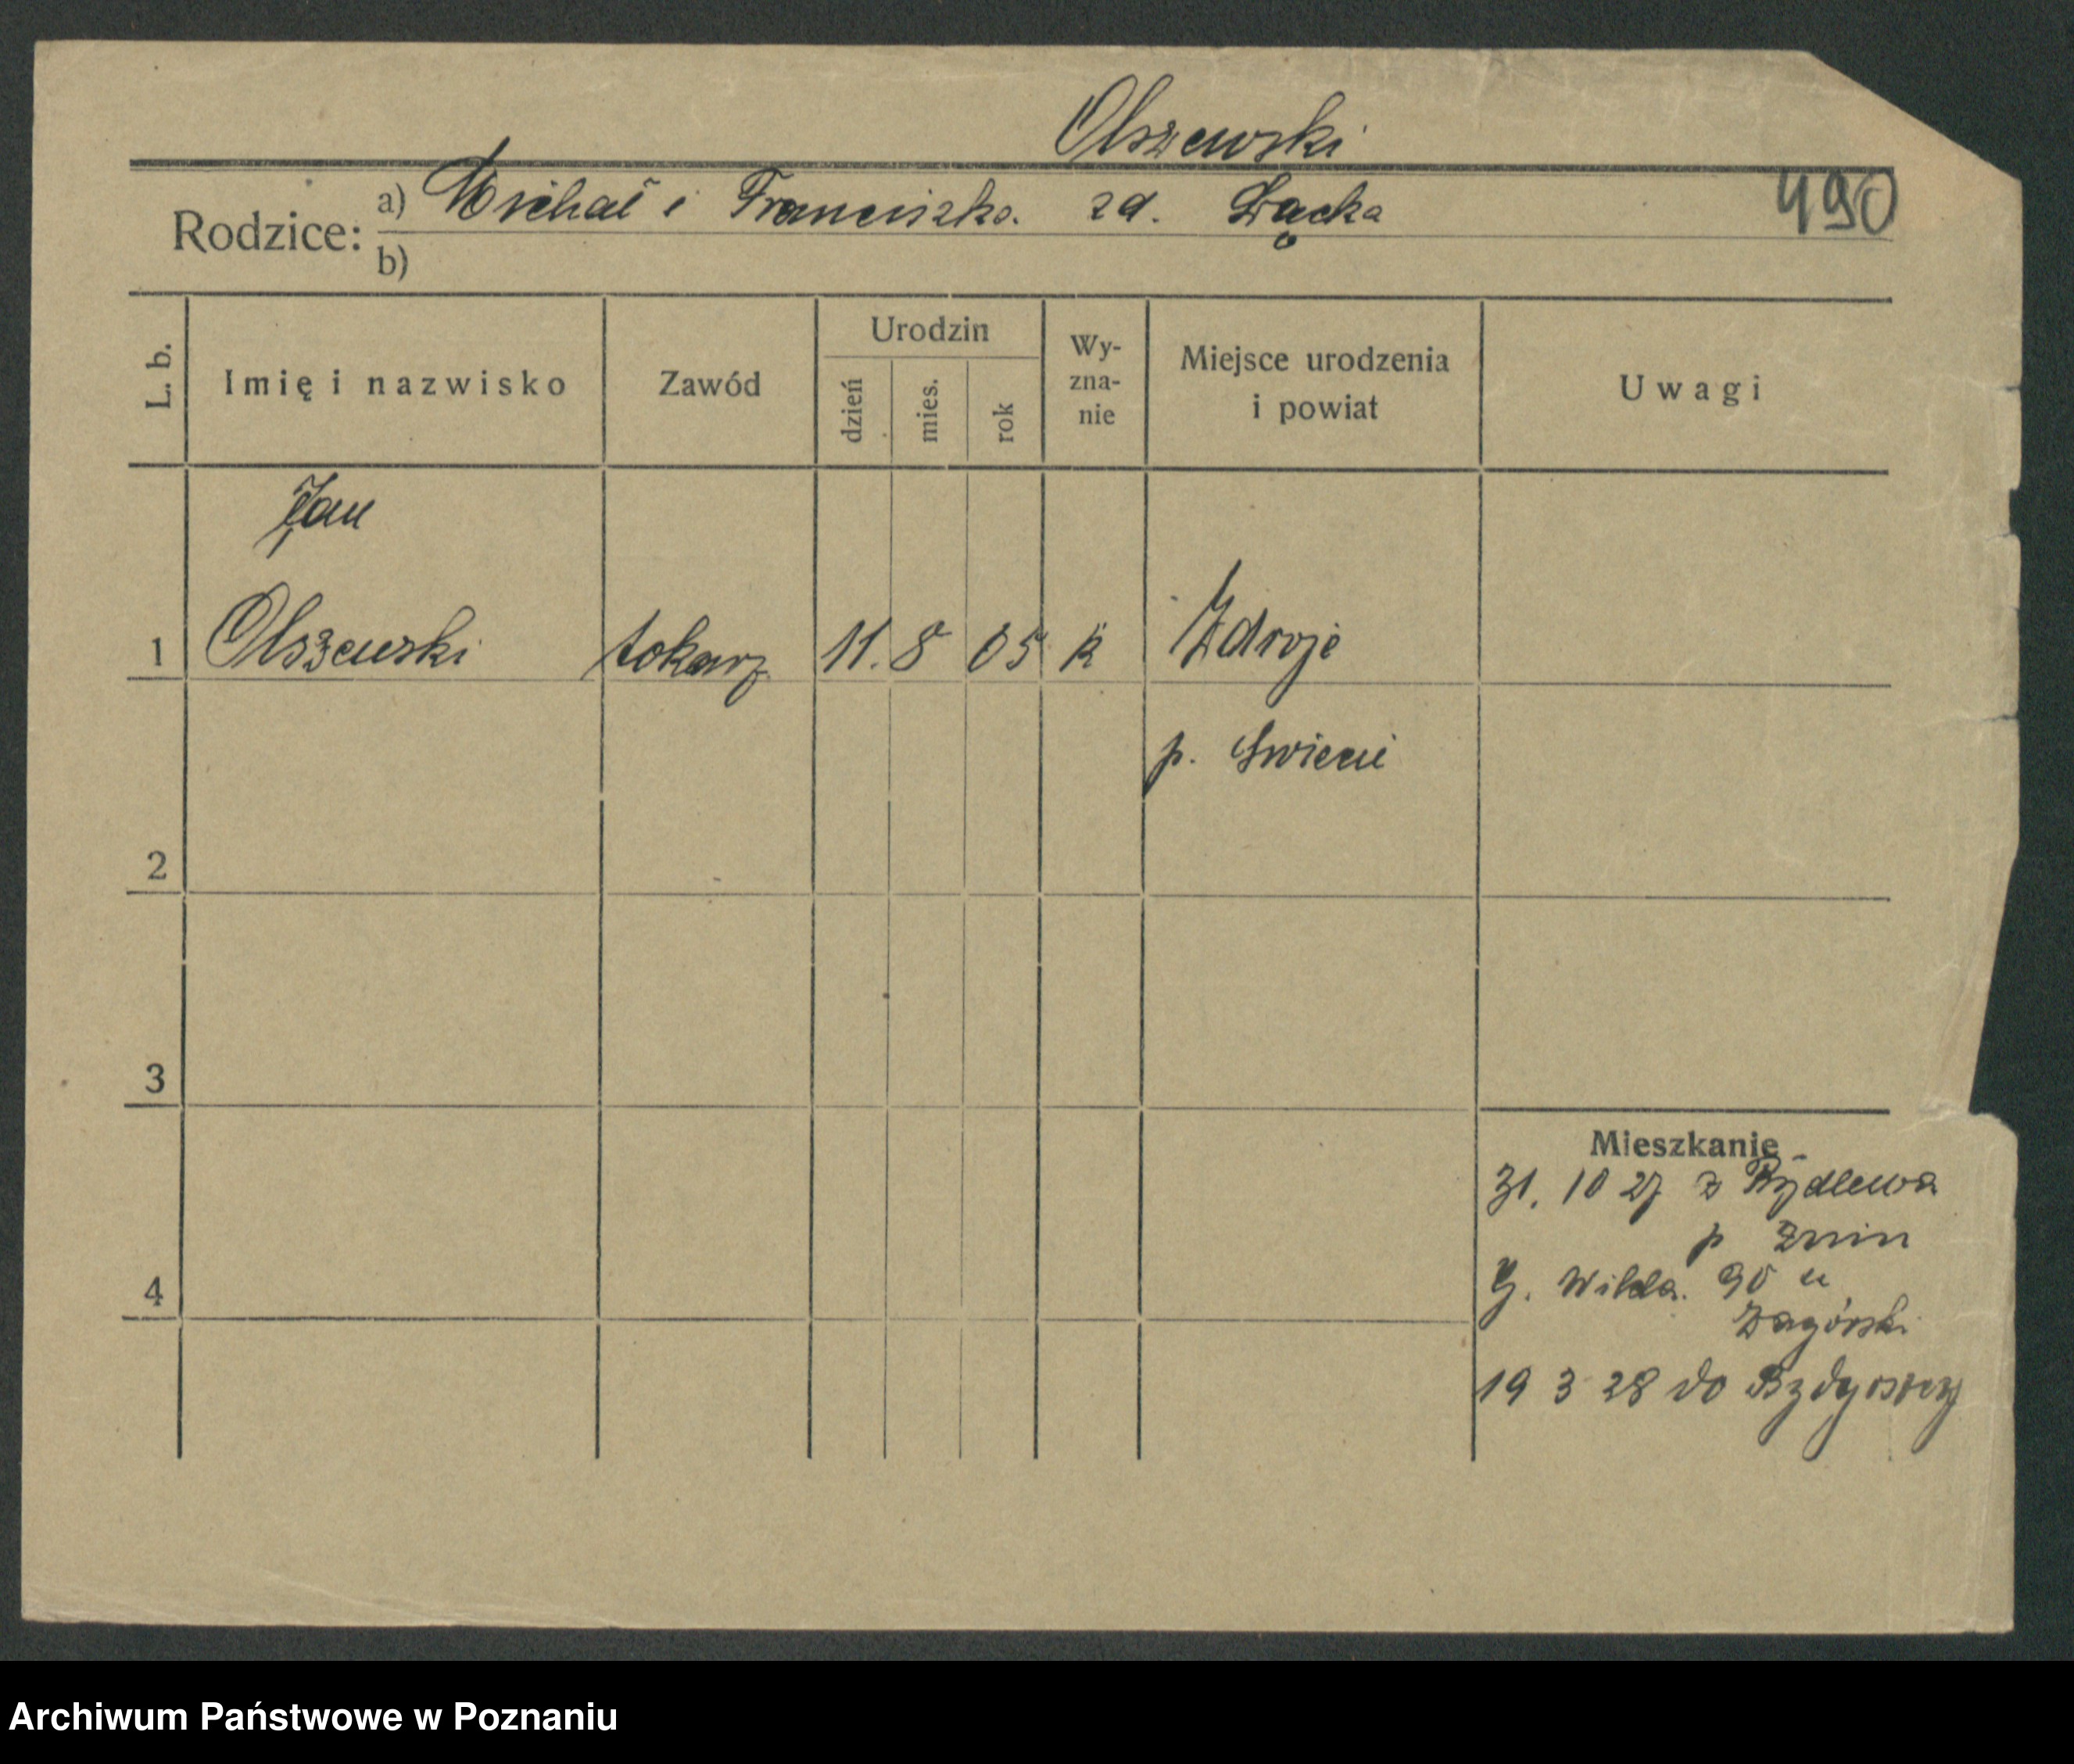 Olszewski
490
Rodzice: a) Michał i Franciszka zd. Łącka
b)
L. b.
Imię i nazwisko
Zawód
Urodzin
dzień
mies.
rok
Wy-
zna-
nie
Miejsce urodzenia
i powiat
Uwagi
Jan
1 Olszewski tokarz 11. 8 05 k Zdroje
p. Swiecie
2
3
4
Mieszkanie
31. 10 27 z Rydlewa
p Znin
G. Wilda. 90 u
Zagórski
19 3 28 do Bydgoszcz
Archiwum Państwowe w Poznaniu